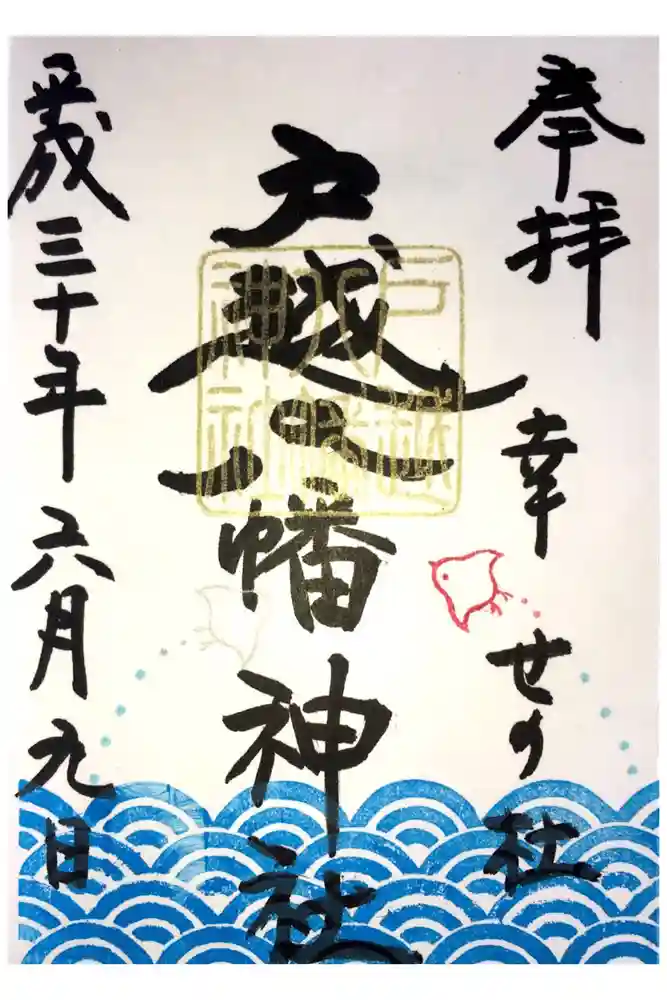 奉拝
幸せの社
戸越八幡神社
戸越
八幡
神社
平成三十年六月九日